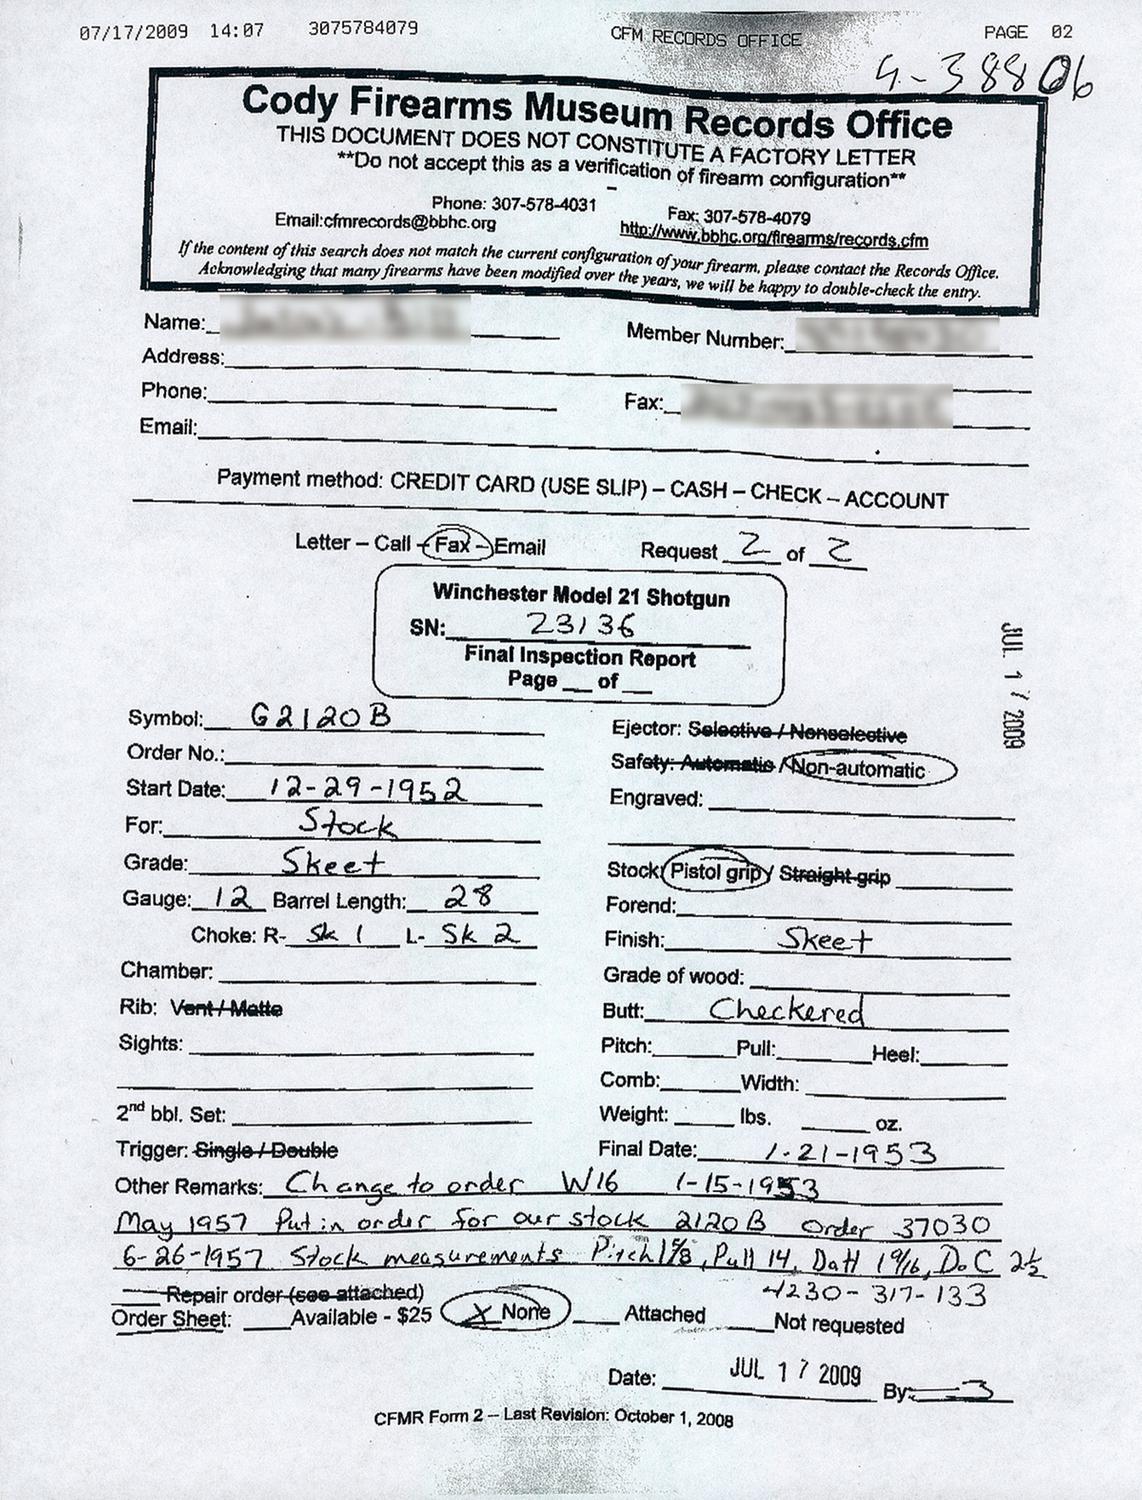 07/17/2009 14:07 3075784079 CFM RECORDS OFFICE PAGE 02
9-38806
Cody Firearms Museum Records Office
THIS DOCUMENT DOES NOT CONSTITUTE A FACTORY LETTER
**Do not accept this as a verification of firearm configuration**
Phone: 307-578-4031 Fax: 307-578-4079
Email:cfmrecords@bbhc.org http://www.bbhc.org/firearms/records.cfm
If the content of this search does not match the current configuration of your firearm, please contact the Records Office.
Acknowledging that many firearms have been modified over the years, we will be happy to double-check the entry.
Name: Member Number:
Address:
Phone: Fax:
Email:
Payment method: CREDIT CARD (USE SLIP) – CASH – CHECK – ACCOUNT
Letter – Call – Fax – Email Request 2 of 2
Winchester Model 21 Shotgun
SN: 23136
Final Inspection Report
Page __ of __
JUL 17 2009
Symbol: G2120B Ejector: Selective / Nonselective
Order No.: Safety: Automatic / Non-automatic
Start Date: 12-29-1952 Engraved:
For: Stock
Grade: Skeet Stock: Pistol grip / Straight grip
Gauge: 12 Barrel Length: 28 Forend:
Choke: R- Sk 1 L- Sk 2 Finish: Skeet
Chamber: Grade of wood:
Rib: Vent / Matte Butt: Checkered
Sights: Pitch: Pull: Heel:
Comb: Width:
2nd bbl. Set: Weight: lbs. oz.
Trigger: Single / Double Final Date: 1-21-1953
Other Remarks: Change to order W16 1-15-1953
May 1957 Put in order for our stock 2120B Order 37030
6-26-1957 Stock measurements Pitch 1 5/8, Pull 14, DatH 1 9/16, DoC 2½
Repair order (see attached) 4230-317-133
Order Sheet: Available - $25 X None Attached Not requested
Date: JUL 17 2009 By:
CFMR Form 2 – Last Revision: October 1, 2008